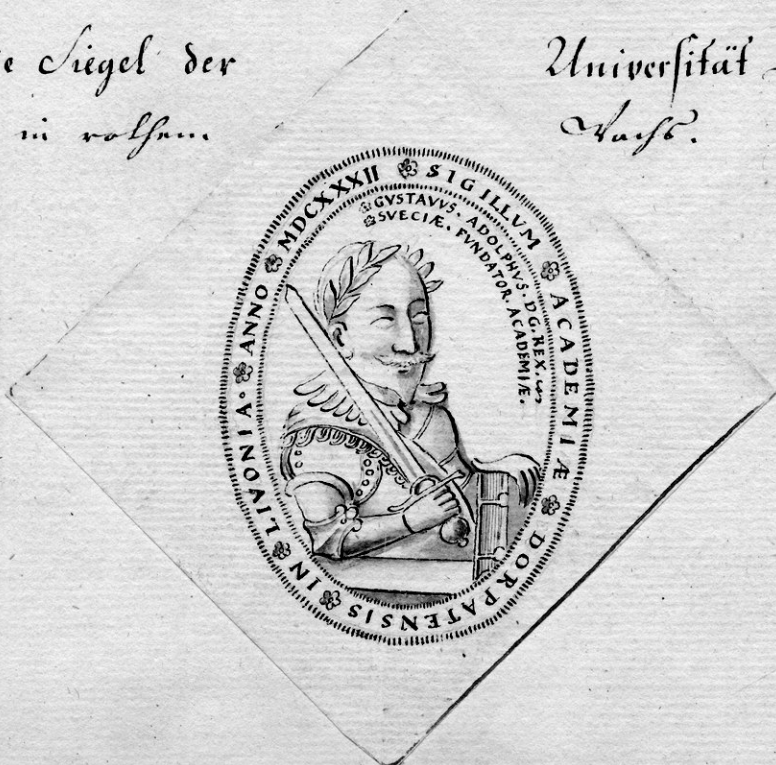 e Siegel der Universität
in rothem Wachs.
SIGILLVM ACADEMIÆ DORPATENSIS IN LIVONIA. ANNO MDCXXXII
GVSTAVVS. ADOLPHVS. D.G. REX.
SVECIÆ. FVNDATOR. ACADEMIÆ.